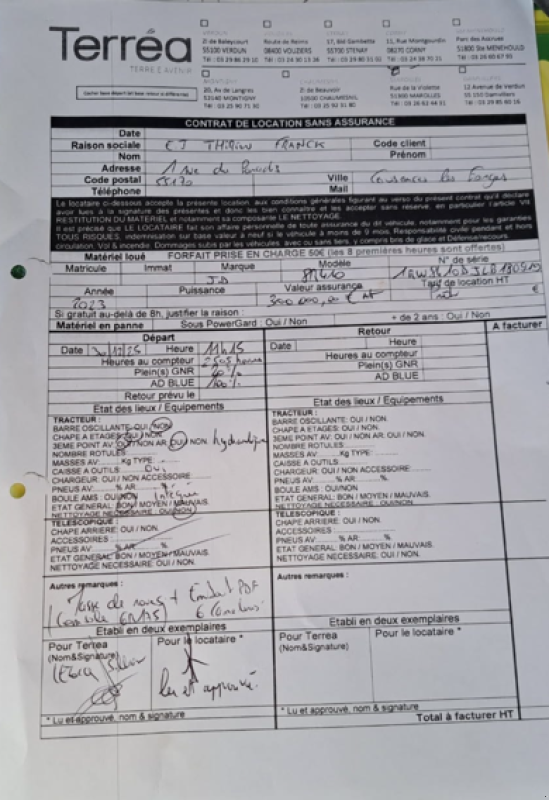 Terréa
TERRE D'AVENIR
Cocher foire départ (et lieu retour si différente)
VERDUN
ZI de Baleycourt
55100 VERDUN
Tél : 03 29 86 29 10
Route de Reims
08400 VOUZIERS
Tél : 03 24 30 13 36
17, Bld Gambetta
55700 STENAY
Tél : 03 29 80 31 02
11, Rue Montgourdin
08270 CORNY
Parc des Accrues
51800 Ste MENEHOULD
Tél : 03 26 60 67 99
20, Av de Langres
52140 MONTIGNY
Tél : 03 25 90 71 30
ZI de Beauvoir
10500 CHAUMESNIL
Tél : 03 25 92 51 80
Rue de la Violette
51300 MAROLLES
12 Avenue de Verdun
55 150 Damvillers
Tél : 03 29 85 60 16
CONTRAT DE LOCATION SANS ASSURANCE
Date
Raison sociale EI THIRION FRANCK Code client
Nom Prénom
Adresse 1 rue du
Code postal 55170 Ville Cousances les Forges
Téléphone Mail
Le locataire ci-dessous accepte la présente location, aux conditions générales figurant au verso du présent contrat qu'il déclare
avoir lues à la signature des présentes et donc les bien connaître et les accepter sans réserve, en particulier l'article VII
RESTITUTION DU MATERIEL et notamment sa composante LE NETTOYAGE.
Il est précisé que LE LOCATAIRE fait son affaire personnelle de toute assurance du dit véhicule, notamment pour les garanties
TOUS RISQUES, indemnisation sur base valeur à neuf si le véhicule à moins de 9 mois. Responsabilité civile pendant et hors
circulation, Vol & incendie. Dommages subis par les véhicules avec ou sans tiers, y compris bris de glace et Défense/recours.
Matériel loué FORFAIT PRISE EN CHARGE 50€ (les 8 premières heures sont offertes)
Matricule Immat Marque Modèle N° de série
J.D 8R410
Année Puissance Valeur assurance Tarif de location HT
2023 300 000,00 € HT
Si gratuit au-delà de 8h, justifier la raison :
Matériel en panne Sous PowerGard : Oui / Non + de 2 ans : Oui / Non
Départ Retour A facturer
Date /12/25 Heure 11h15 Date Heure
Heures au compteur 2505 heures Heures au compteur
Plein(s) GNR % Plein(s) GNR
AD BLUE 100% AD BLUE
Retour prévu le
Etat des lieux / Equipements Etat des lieux / Equipements
TRACTEUR:
BARRE OSCILLANTE: OUI / NON
CHAPE A ETAGES: OUI / NON
3EME POINT AV: OUI / NON AR: OUI / NON hydraulique
NOMBRE ROTULES
MASSES AV: Kg TYPE
CAISSE A OUTILS Oui
CHARGEUR: OUI / NON ACCESSOIRE
PNEUS AV % AR %
BOULE AMS : OUI/NON Intégrée
ETAT GENERAL: BON / MOYEN / MAUVAIS
NETTOYAGE NECESSAIRE : OUI/NON
TELESCOPIQUE :
CHAPE ARRIERE: OUI / NON
ACCESSOIRES
PNEUS AV % AR %
ETAT GENERAL BON / MOYEN / MAUVAIS.
NETTOYAGE NECESSAIRE: OUI / NON.
TRACTEUR:
BARRE OSCILLANTE: OUI / NON
CHAPE A ETAGES: OUI / NON
3EME POINT AV: OUI / NON AR: OUI / NON.
NOMBRE ROTULES
MASSES AV Kg TYPE
CAISSE A OUTILS
CHARGEUR: OUI / NON ACCESSOIRE
PNEUS AV % AR: %
BOULE AMS : OUI/NON
ETAT GENERAL: BON / MOYEN / MAUVAIS
NETTOYAGE NECESSAIRE : OUI/NON
TELESCOPIQUE :
CHAPE ARRIERE: OUI / NON.
ACCESSOIRES
PNEUS AV % AR %
ETAT GENERAL: BON / MOYEN / MAUVAIS.
NETTOYAGE NECESSAIRE: OUI / NON.
Autres remarques : Autres remarques :
Masse de roues + PDF
1 console
Etabli en deux exemplaires Etabli en deux exemplaires
Pour Terrea Pour le locataire * Pour Terrea Pour le locataire *
(Nom&Signature) (Nom&Signature)
lu et approuvé.
* Lu et approuvé, nom & signature * Lu et approuvé, nom & signature
Total à facturer HT